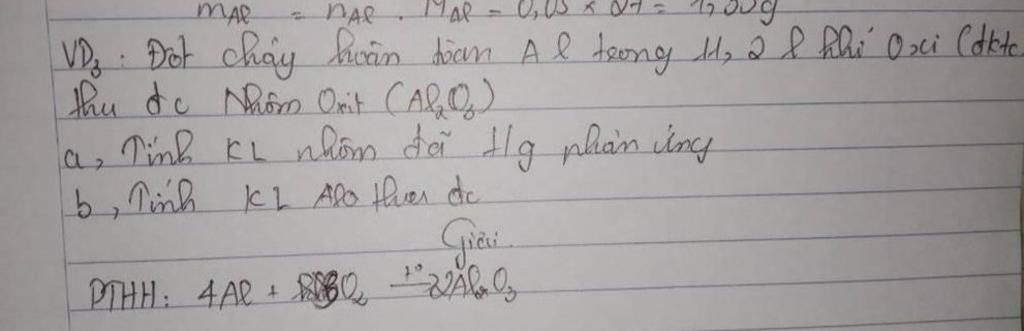 mAl = nAl . MAl = 0,05 x 27 = 1,35g
VD3 : Đốt cháy hoàn toàn Al trong 11,2 l khí Oxi (đktc
thu đc Nhôm Oxit (Al2O3)
a, Tính KL nhôm đã t/g phản ứng
b, Tính KL AlO thu đc
Giải
PTHH: 4Al + 3O2 t° 2Al2O3